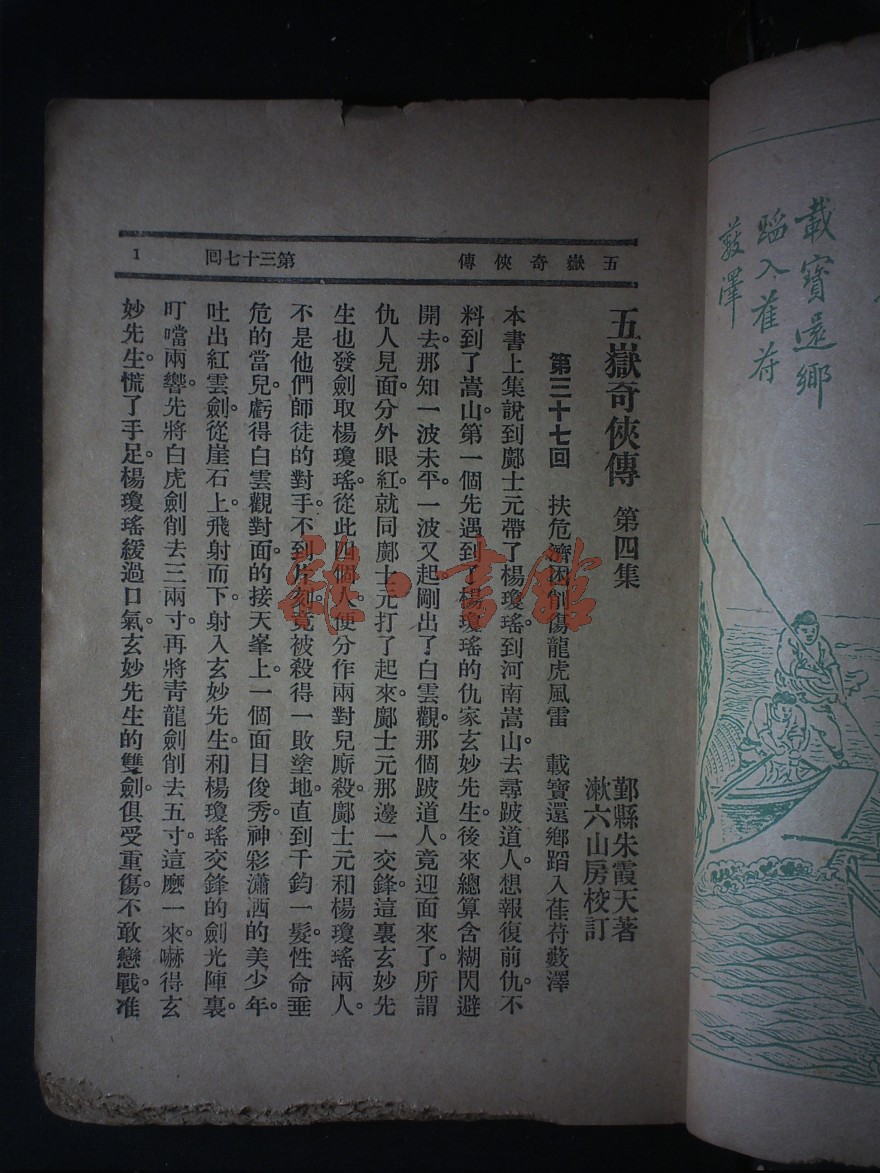 載寶還鄉
蹈入萑苻
藪澤
五嶽奇俠傳 第三十七回 1
五嶽奇俠傳 第四集
鄞縣朱霞天著
漱六山房校訂
第三十七回 扶危濟困削傷龍虎風雷 載寶還鄉蹈入萑苻藪澤
本書上集說到鄺士元帶了楊瓊瑤。到河南嵩山。去尋跛道人。想報復前仇。不
料到了嵩山。第一個先遇到了楊瓊瑤的仇家玄妙先生。後來總算含糊閃避
開去。那知一波未平。一波又起。剛出了白雲觀。那個跛道人。竟迎面來了。所謂
仇人見面。分外眼紅。就同鄺士元打了起來。鄺士元那邊一交鋒。這裏玄妙先
生也發劍取楊瓊瑤。從此四個人。便分作兩對兒廝殺。鄺士元和楊瓊瑤兩人。
不是他們師徒的對手。不到片刻。竟被殺得一敗塗地。直到千鈞一髮。性命垂
危的當兒。虧得白雲觀對面的接天峯上。一個面目俊秀。神彩瀟洒的美少年。
吐出紅雲劍。從崖石上。飛射而下。射入玄妙先生。和楊瓊瑤交鋒的劍光陣裏。
叮噹兩響。先將白虎劍削去三兩寸。再將青龍劍削去五寸。這麼一來。嚇得玄
妙先生。慌了手足。楊瓊瑤緩過口氣。玄妙先生的雙劍。俱受重傷。不敢戀戰。准
雜·書館